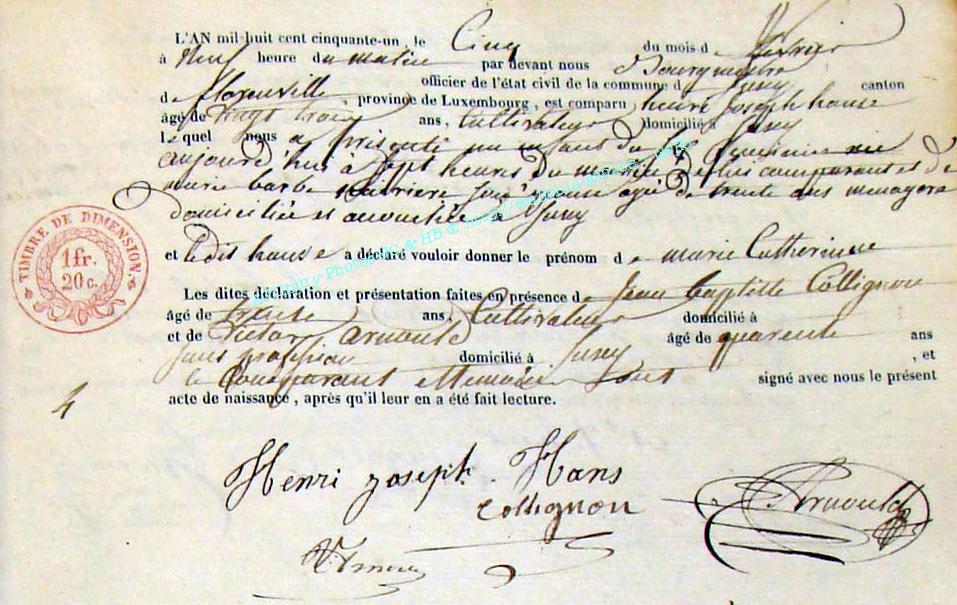 L'AN mil-huit cent cinquante-un, le Cinq du mois de février
à Neuf heure du matin par devant nous Bourgmestre
officier de l'état civil de la commune de Jusey canton
de , province de Luxembourg, est comparu henri Joseph hanse
âgé de vingt trois ans, Cultivateur domicilié à Jusey
Lequel nous a présenté un enfant du sexe féminin née
aujourd'hui à Sept heures du matin de lui comparant et de
marie barbe son épouse agé de trente ans menagere
domiciliée et accouchée à Jusey
et ledit hanse a déclaré vouloir donner le prénom de marie Catherine
Les dites déclaration et présentation faites en présence de Jean baptiste Collignon
âgé de trente ans, Cultivateur domicilié à
et de Victor arnould âgé de quarente ans
sans profession domicilié à Jusey , et
le Comparant et temoins Sont signé avec nous le présent
acte de naissance, après qu'il leur en a été fait lecture.
TIMBRE DE DIMENSION.
1 fr.
20 c.
4
Henri joseph Hans
Collignon
Arnould